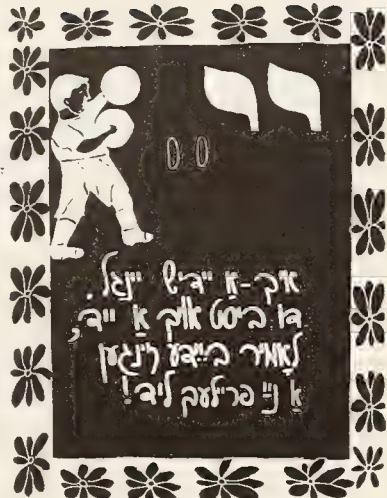 יי
00
איך -אַ יידיש יינגל,
דו ביסט אויך אַ ייד,
לאָמיר ביידע זינגען
אַ נײַ פריילעך ליד!